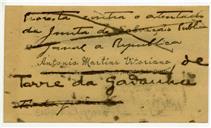 Protesta contra o attentado
da Junta de Salvação Publica
e a Republica
Antonio Martins Vitoriano, de
Torre da Gadanha